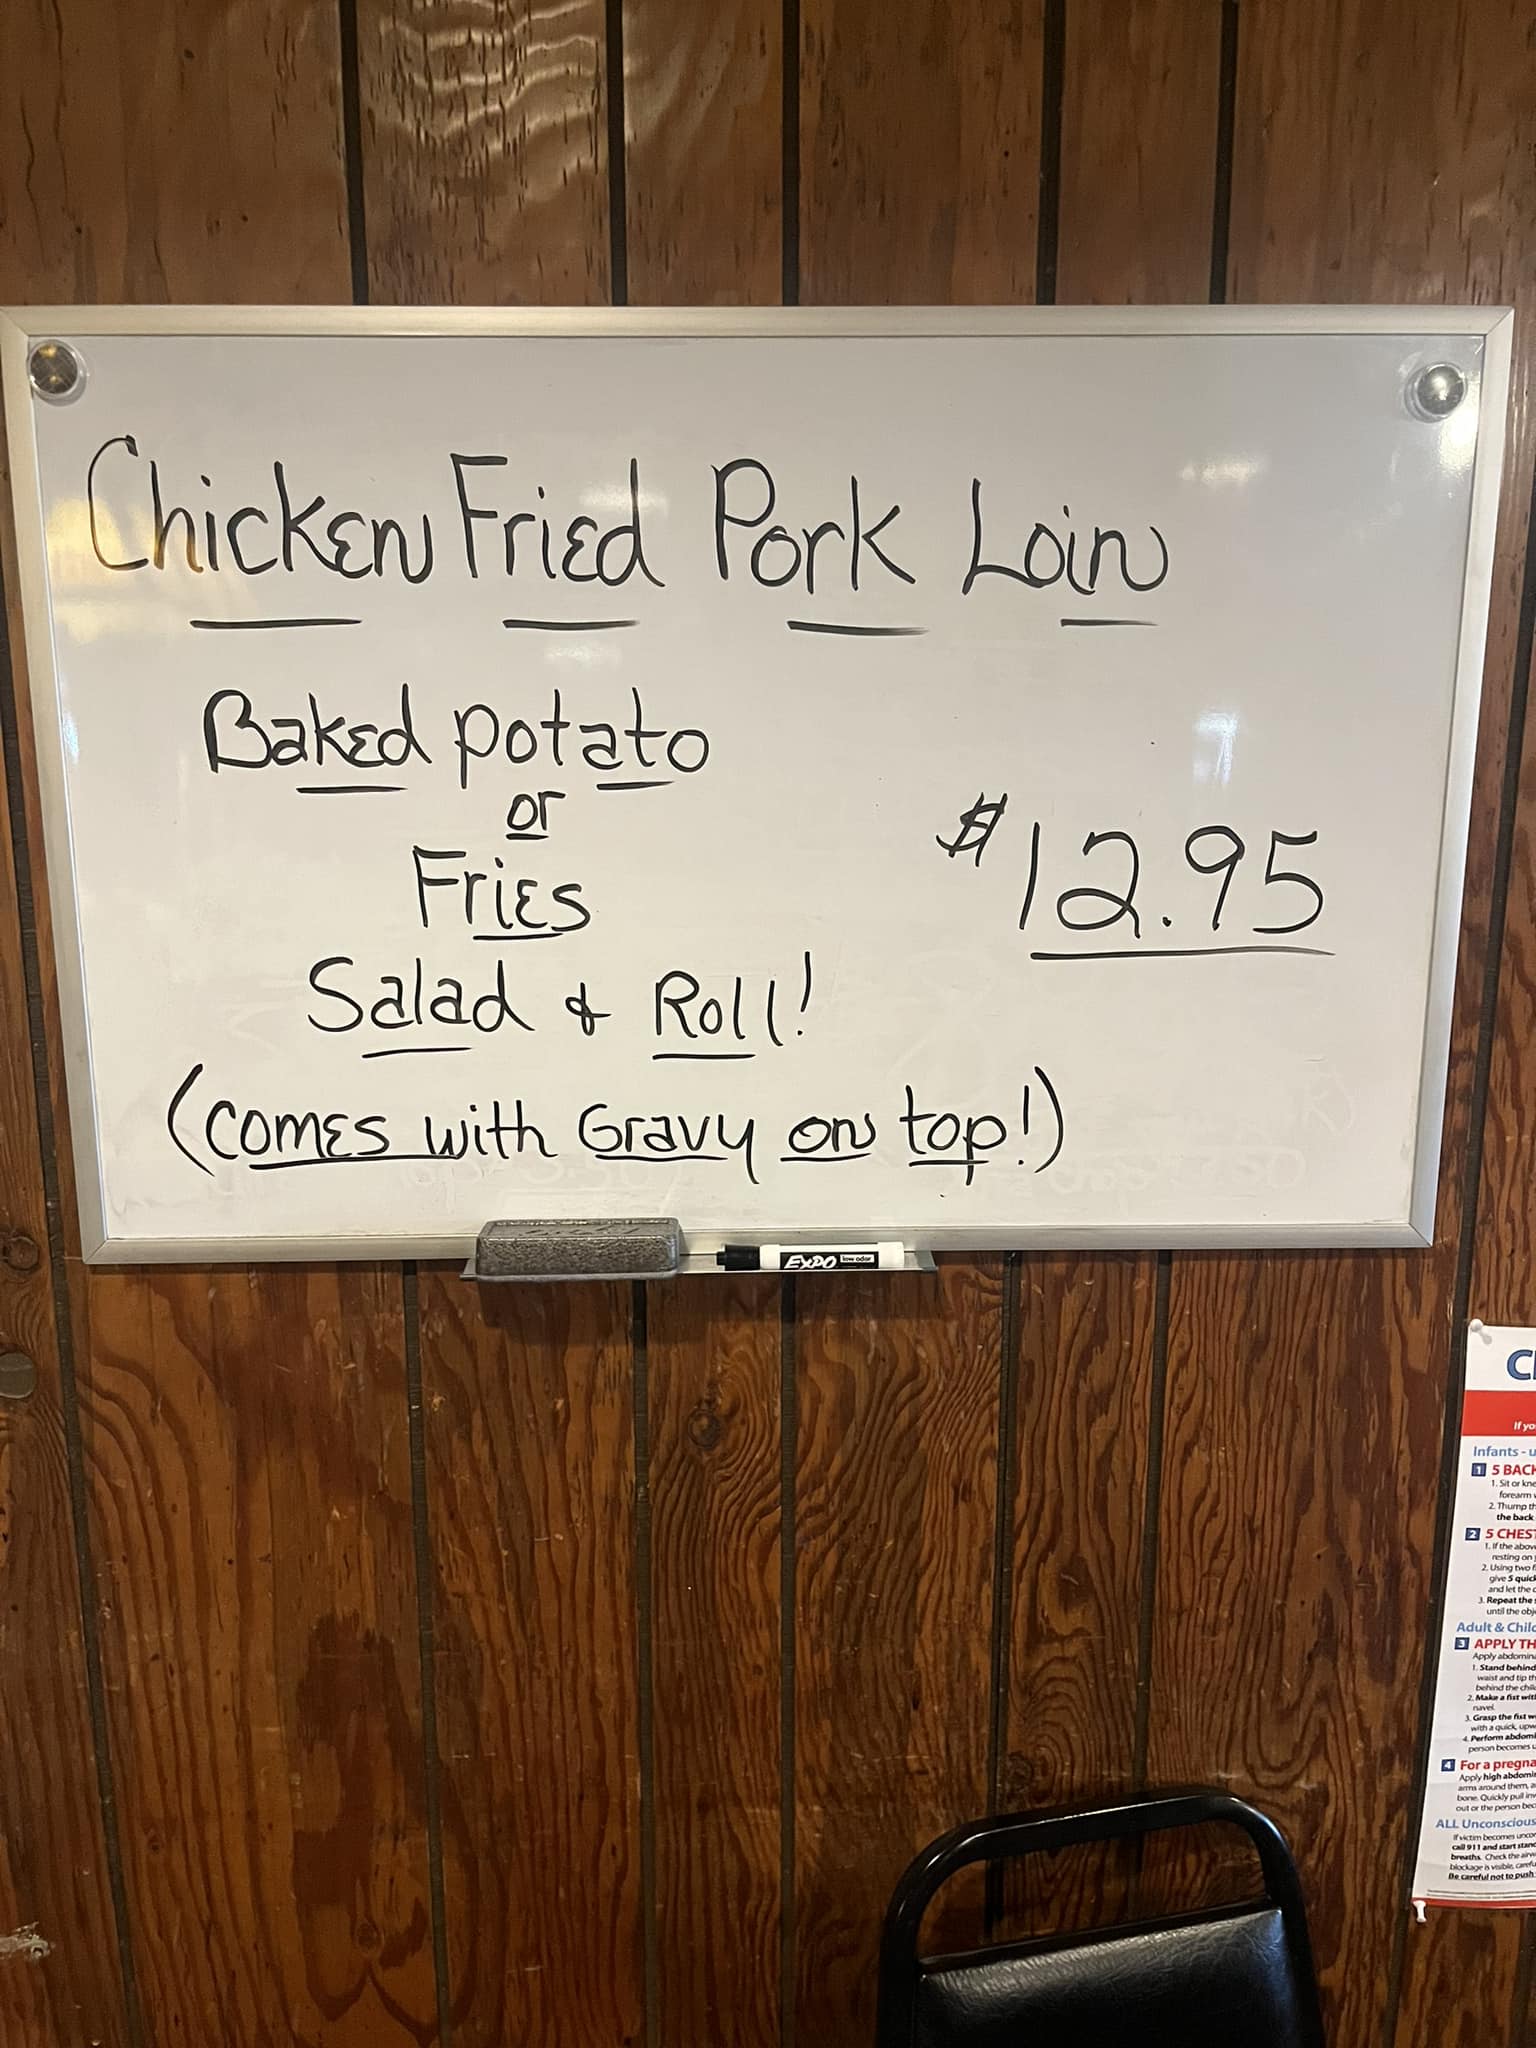 Chicken Fried Pork Loin
Baked potato
or
Fries
$12.95
Salad & Roll!
(comes with Gravy on top!)
EXPO low odor
If yo
Infants - u
1 5 BACK
1. Sit or kne
forearm
2. Thump th
the back
2 5 CHEST
1. If the abov
resting on
2. Using two f
give 5 quick
and let the
3. Repeat the
until the obj
Adult & Chil
3 APPLY TH
Apply abdomin
1. Stand behind
waist and tip th
behind the chil
2. Make a fist wit
navel.
3. Grasp the fist w
with a quick, upw
4. Perform abdom
person becomes u
4 For a pregna
Apply high abdomi
arms around them, a
bone. Quickly pull inw
out or the person bec
ALL Unconscious
If victim becomes uncon
call 911 and start stand
breaths. Check the airw
blockage is visible, caref
Be careful not to push